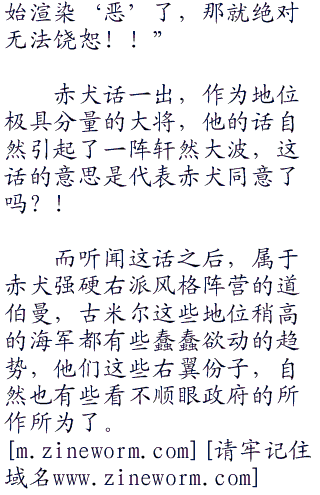 始渲染‘恶’了，那就绝对
无法饶恕！！”
赤犬话一出，作为地位
极具分量的大将，他的话自
然引起了一阵轩然大波，这
话的意思是代表赤犬同意了
吗？！
而听闻这话之后，属于
赤犬强硬右派风格阵营的道
伯曼，古米尔这些地位稍高
的海军都有些蠢蠢欲动的趋
势，他们这些右翼份子，自
然也有些看不顺眼政府的所
作所为了。
[m.zineworm.com][请牢记住
域名www.zineworm.com]